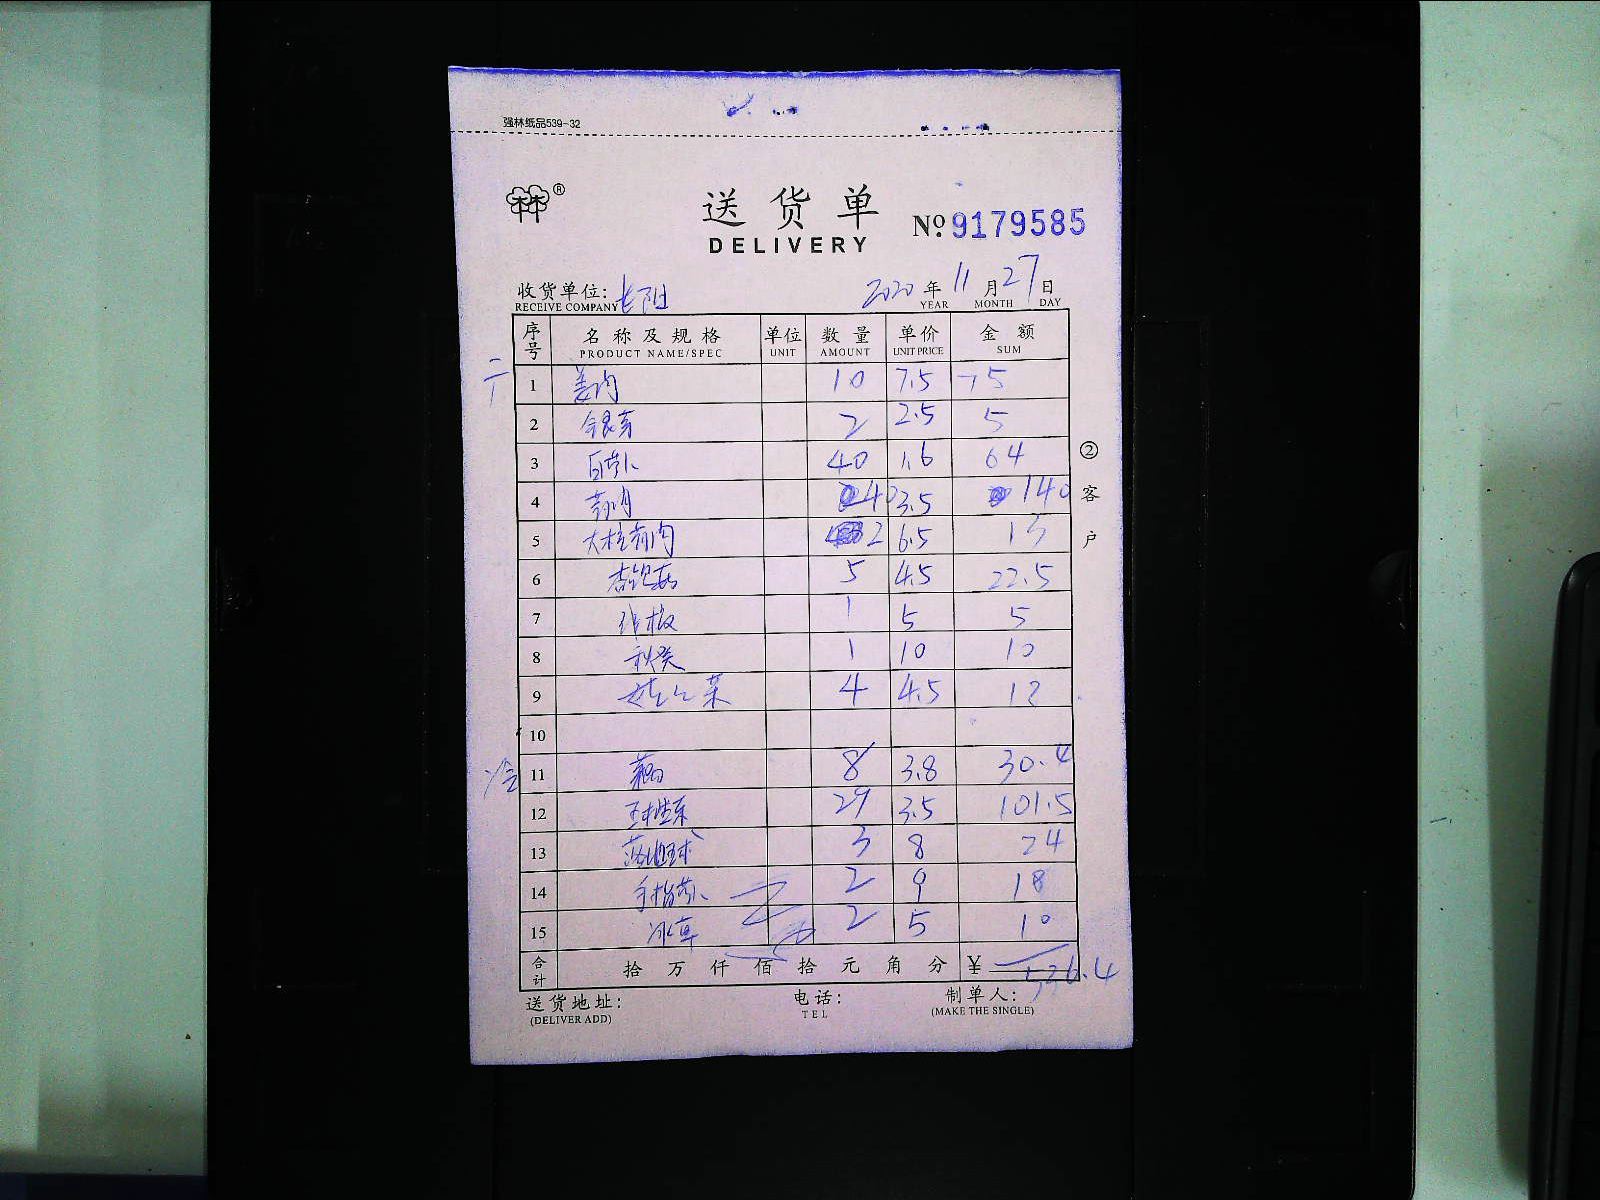 强林纸品539-32
林®
送货单 №9179585
DELIVERY
收货单位: 长阳 2020年11月27日
RECEIVE COMPANY YEAR MONTH DAY
序号 名称及规格 单位 数量 单价 金额
PRODUCT NAME/SPEC UNIT AMOUNT UNIT PRICE SUM
1 姜肉 10 7.5 75
2 银芽 2 2.5 5
3 白萝卜 40 1.6 64
4 40 3.5 140
5 2 6.5 13
6 杏鲍菇 5 4.5 22.5
7 1 5 5
8 秋葵 1 10 10
9 4 4.5 12
10
冷 11 8 3.8 30.4
12 29 3.5 101.5
13 3 8 24
14 手指萝卜 2 9 18
15 冰草 2 5 10
合计 拾万仟佰拾元角分 ¥ 536.4
②客户
送货地址: 电话: 制单人:
(DELIVER ADD) TEL (MAKE THE SINGLE)